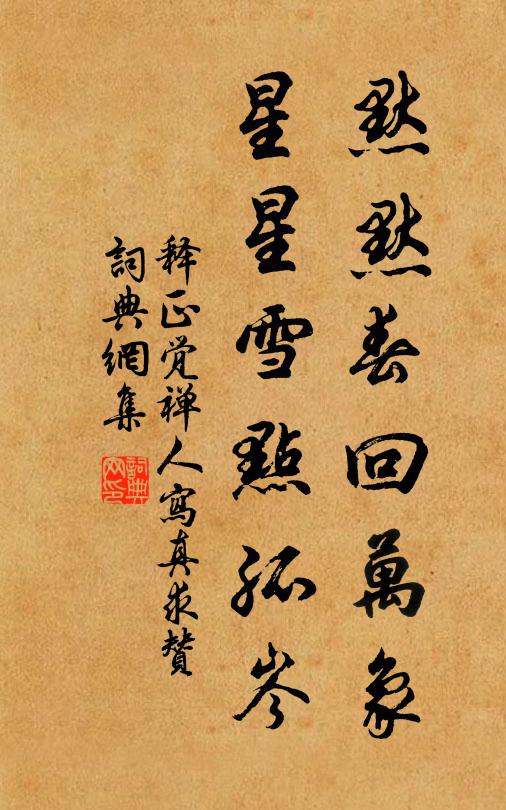 默默春回萬象
星星雪點孤岑
释正覚禅人寫真求贊
詞典網集
詞典网印